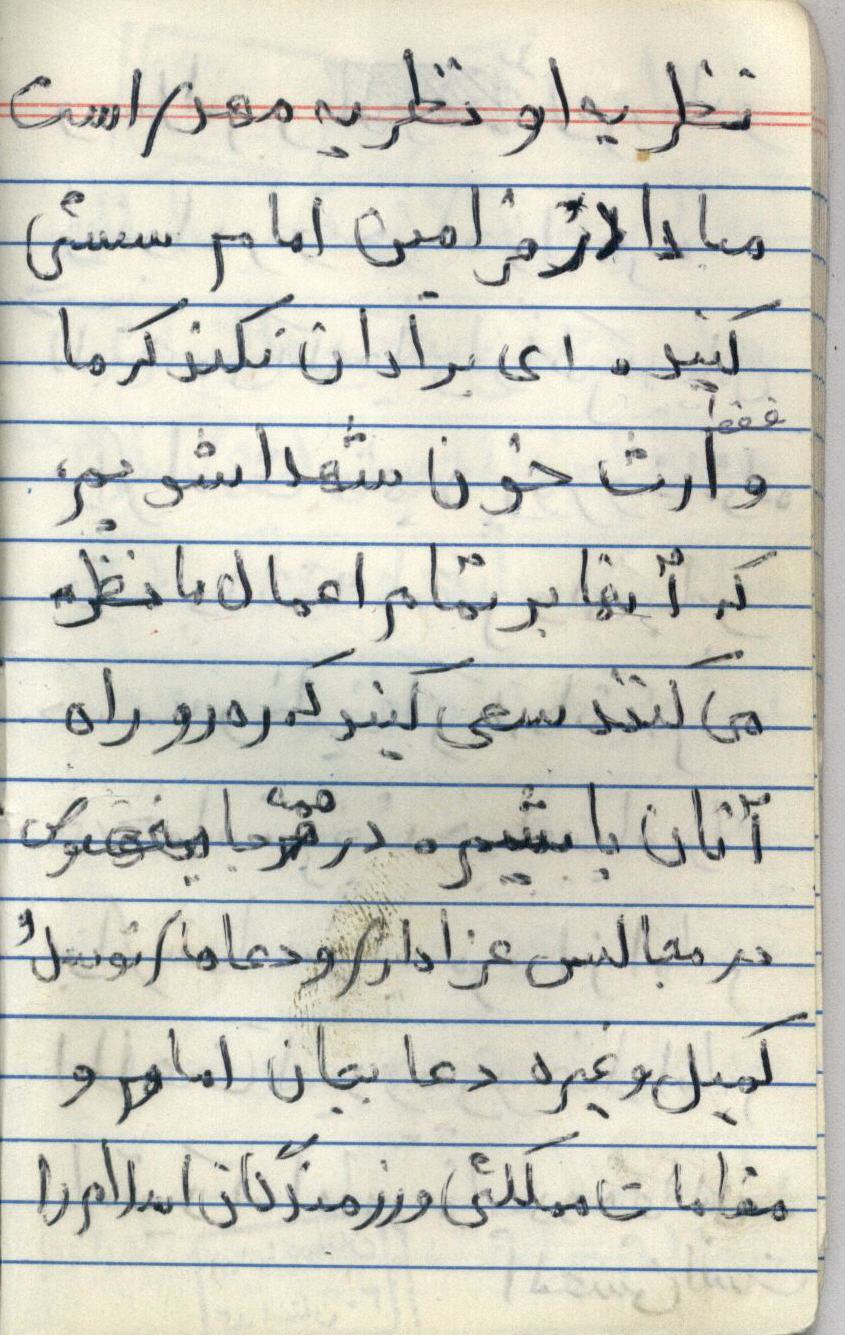 نظریه او نظریه مهدی است
مبادا از فرامین امام سستی
کنید. ای برادان نکند که ما
فقط
وارث خون شهدا شویم،
که آنها بر تمام اعمال ما نظره
می کنند سعی کنید که ره رو راه
آنان باشیم. در همه جا بخصوص
در مجالس عزاداری و دعاهای توسل و
کمیل و غیره دعا بجان امام و
مقامات مملکتی و رزمندگان اسلام را